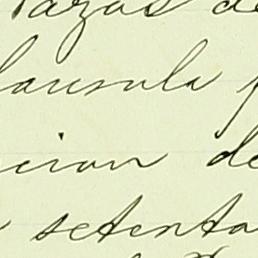 razos de
lausula p
cion de
setenta